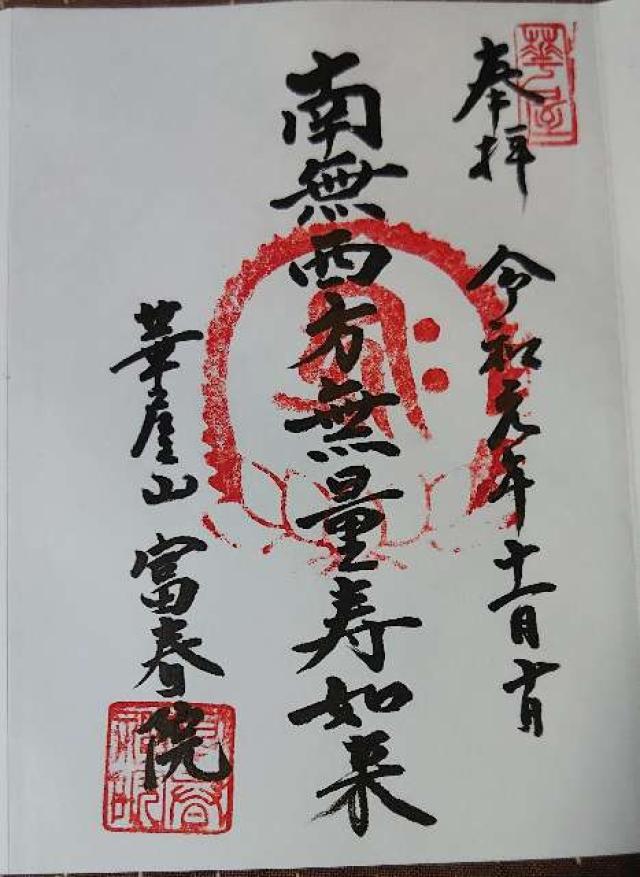 奉拝 令和元年十一月
南無西方無量寿如来
華屋山 富春院